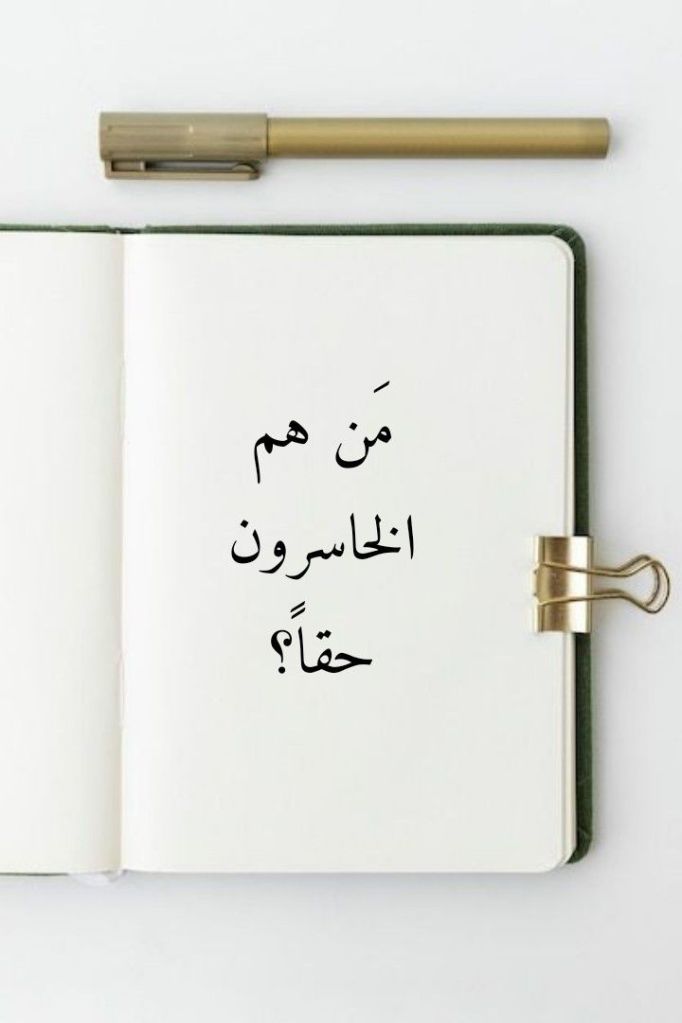 مَن هم
الخاسرون
حقاً؟